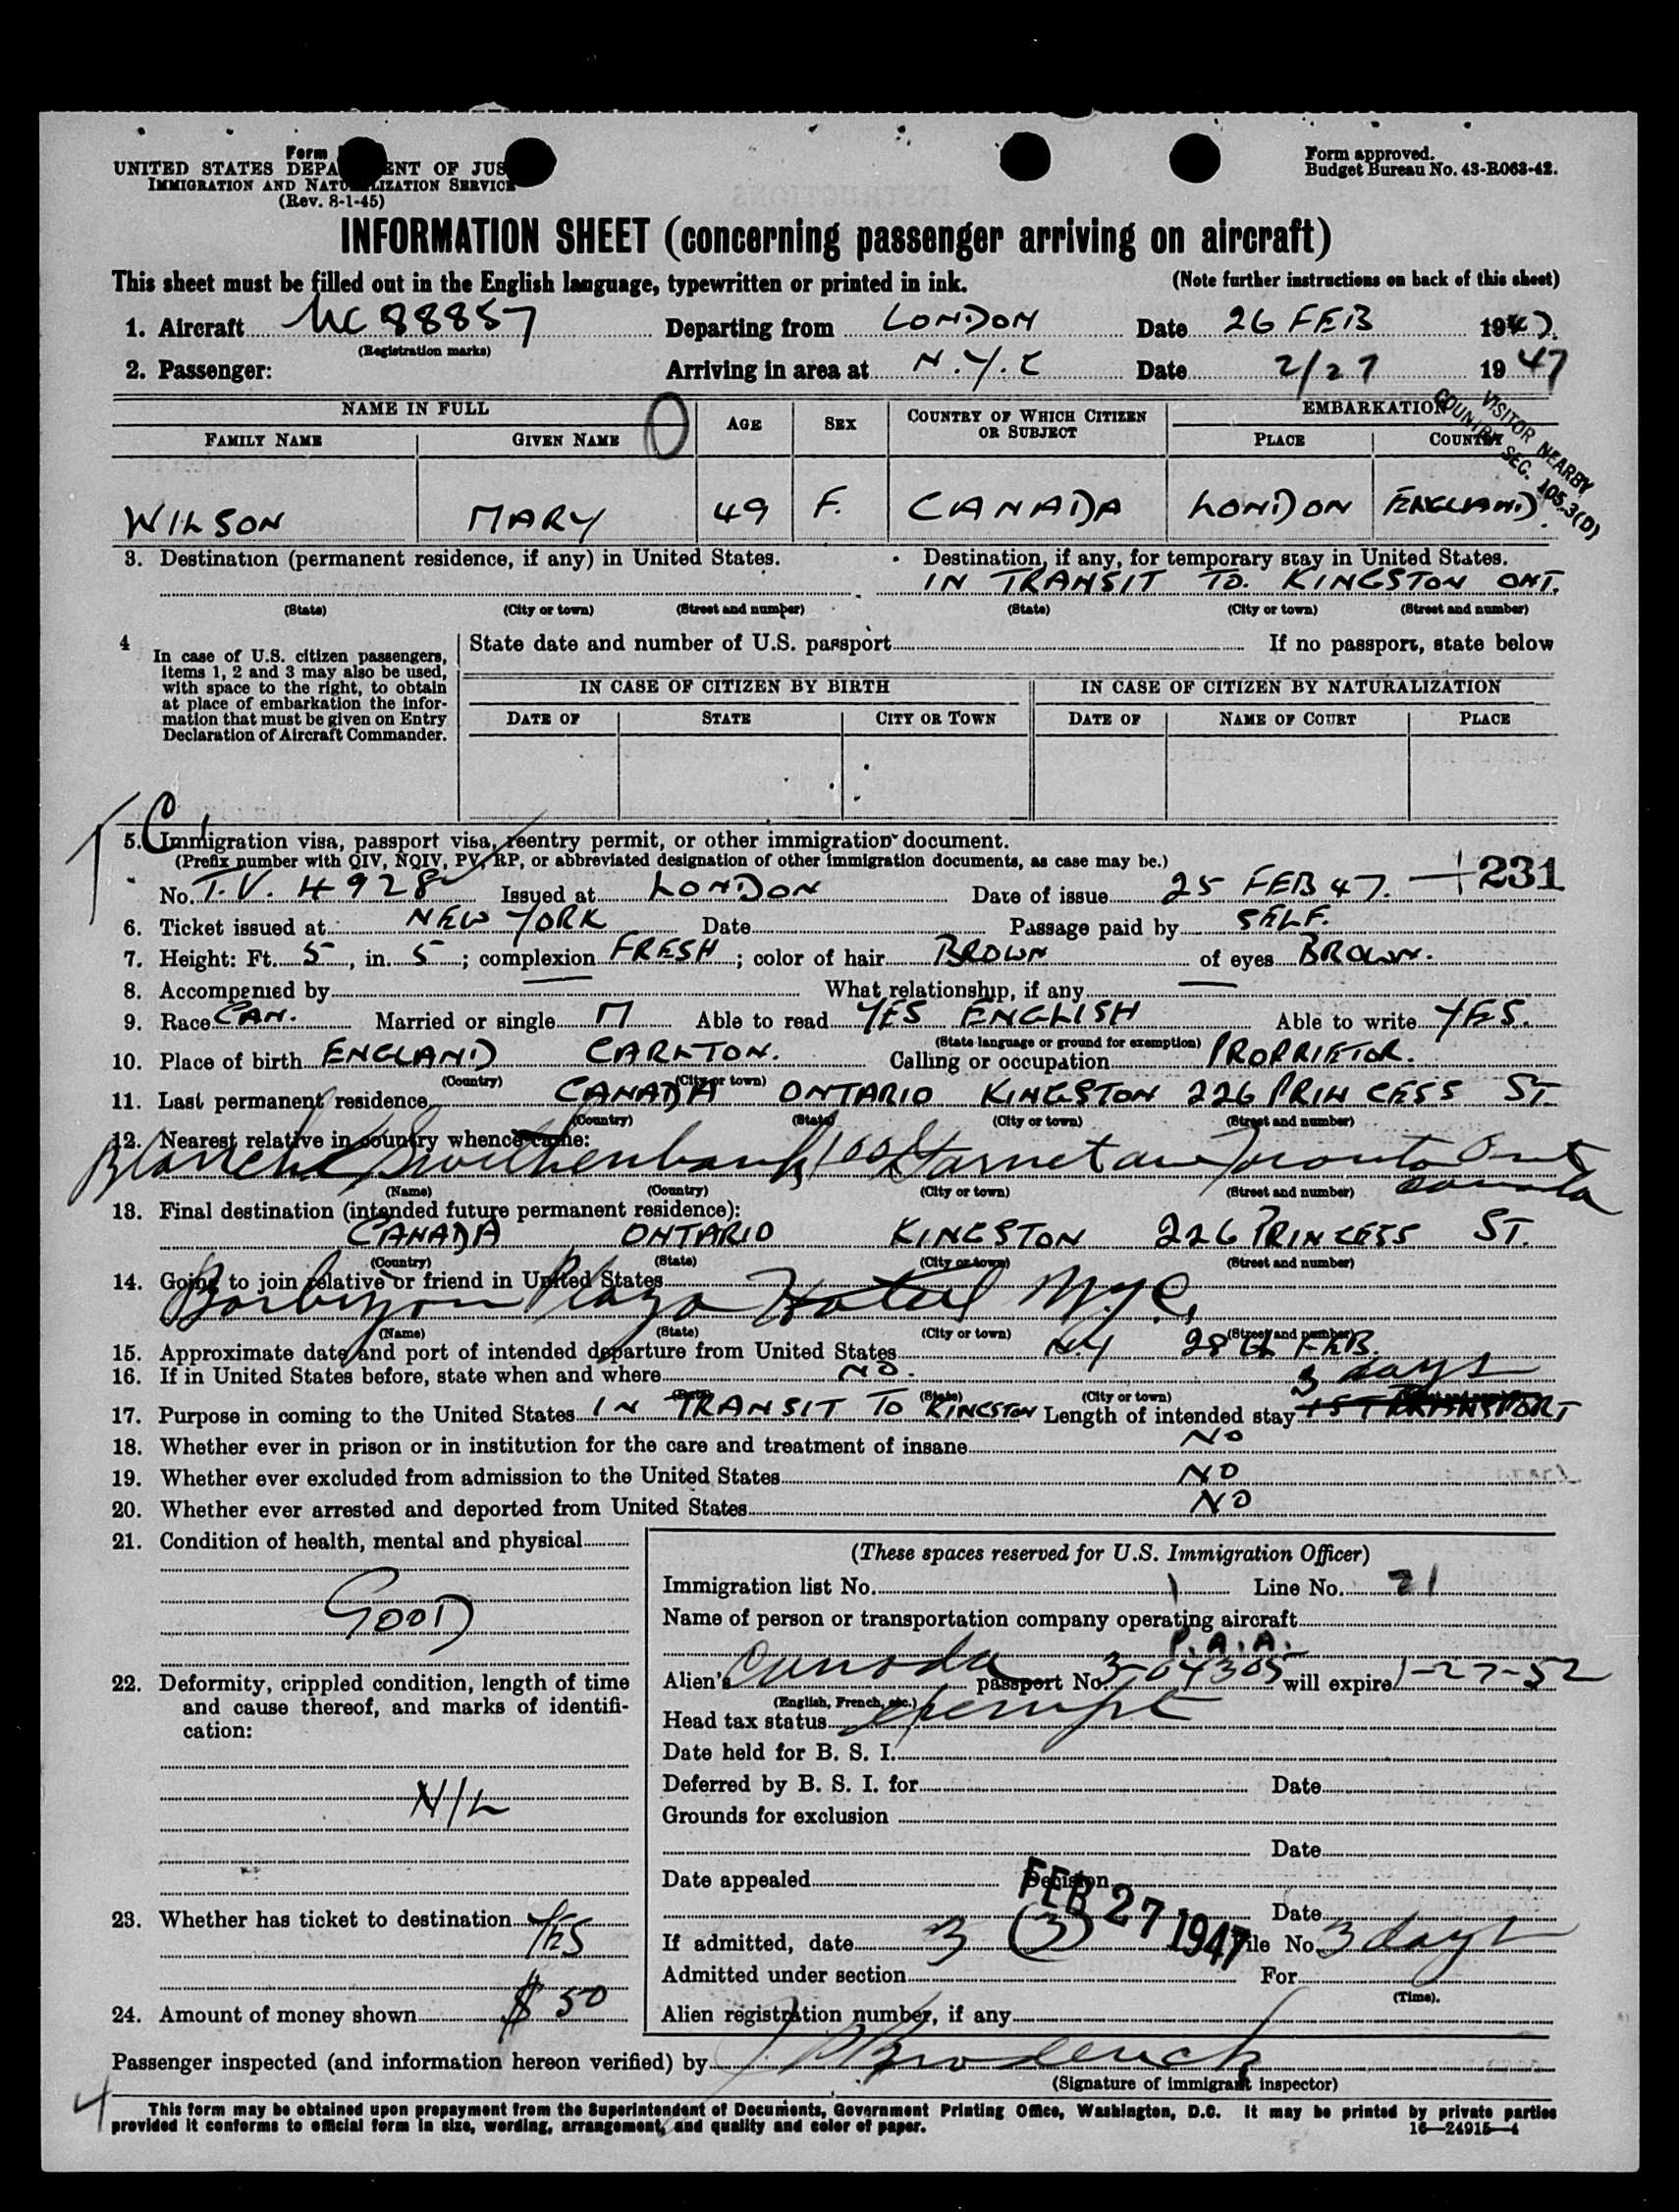 Form
UNITED STATES DEPA ENT OF JUS
IMMIGRATION AND NATU LIZATION SERVICE
(Rev. 8-1-45)
Form approved.
Budget Bureau No. 43-R063-42.
INFORMATION SHEET (concerning passenger arriving on aircraft)
This sheet must be filled out in the English language, typewritten or printed in ink. (Note further instructions on back of this sheet)
1. Aircraft NC 88857 Departing from LONDON Date 26 FEB 1947.
(Registration marks)
2. Passenger: Arriving in area at N.Y.C Date 2/27 1947
NAME IN FULL AGE SEX COUNTRY OF WHICH CITIZEN OR SUBJECT EMBARKATION
FAMILY NAME GIVEN NAME PLACE COUNTRY
VISITOR NEARBY
COUNTRY SEC. 105.3(D)
WILSON MARY 49 F. CANADA LONDON ENGLAND.
3. Destination (permanent residence, if any) in United States. Destination, if any, for temporary stay in United States.
IN TRANSIT TO. KINGSTON ONT.
(State) (City or town) (Street and number) (State) (City or town) (Street and number)
4 In case of U.S. citizen passengers, items 1, 2 and 3 may also be used, with space to the right, to obtain at place of embarkation the information that must be given on Entry Declaration of Aircraft Commander.
State date and number of U.S. passport If no passport, state below
IN CASE OF CITIZEN BY BIRTH IN CASE OF CITIZEN BY NATURALIZATION
DATE OF STATE CITY OR TOWN DATE OF NAME OF COURT PLACE
5. Immigration visa, passport visa, reentry permit, or other immigration document.
(Prefix number with QIV, NQIV, PV, RP, or abbreviated designation of other immigration documents, as case may be.)
231
No. T.V. 4928 Issued at LONDON Date of issue 25 FEB 47.
6. Ticket issued at NEW YORK Date Passage paid by SELF.
7. Height: Ft. 5, in. 5; complexion FRESH; color of hair BROWN of eyes BROWN.
8. Accompanied by What relationship, if any
9. Race CAN. Married or single M Able to read YES ENGLISH Able to write YES.
(State language or ground for exemption)
10. Place of birth ENGLAND CARLTON. Calling or occupation PROPRIETOR.
(Country) (City or town)
11. Last permanent residence CANADA ONTARIO KINGSTON 226 PRINCESS ST.
(Country) (State) (City or town) (Street and number)
12. Nearest relative in country whence came:
Blanche Swithenbank 100 Toronto Ont
Canada
(Name) (Country) (City or town) (Street and number)
13. Final destination (intended future permanent residence):
CANADA ONTARIO KINGSTON 226 PRINCESS ST.
(Country) (State) (City or town) (Street and number)
14. Going to join relative or friend in United States
Barbizon Plaza Hotel N.Y.C.
(Name) (State) (City or town) (Street and number)
15. Approximate date and port of intended departure from United States NY 28th FEB.
16. If in United States before, state when and where NO.
(Date) (State) (City or town)
3 days
17. Purpose in coming to the United States IN TRANSIT TO KINGSTON Length of intended stay 1ST TRANSPORT
18. Whether ever in prison or in institution for the care and treatment of insane NO
19. Whether ever excluded from admission to the United States NO
20. Whether ever arrested and deported from United States NO
21. Condition of health, mental and physical
GOOD
22. Deformity, crippled condition, length of time and cause thereof, and marks of identification:
NIL
23. Whether has ticket to destination YES
24. Amount of money shown $50
(These spaces reserved for U.S. Immigration Officer)
Immigration list No. 1 Line No. 21
Name of person or transportation company operating aircraft
P.A.A.
Alien's Canada passport No. 3-04305 will expire 1-27-52
(English, French, etc.)
Head tax status exempt
Date held for B. S. I.
Deferred by B. S. I. for Date
Grounds for exclusion
Date
Date appealed Decision
FEB 27 1947
Date
If admitted, date 3 (3) File No. 3 days
Admitted under section For
(Time).
Alien registration number, if any
Passenger inspected (and information hereon verified) by J. P. Broderick
(Signature of immigrant inspector)
4
This form may be obtained upon prepayment from the Superintendent of Documents, Government Printing Office, Washington, D.C. It may be printed by private parties
provided it conforms to official form in size, wording, arrangement, and quality and color of paper. 16—24915-4